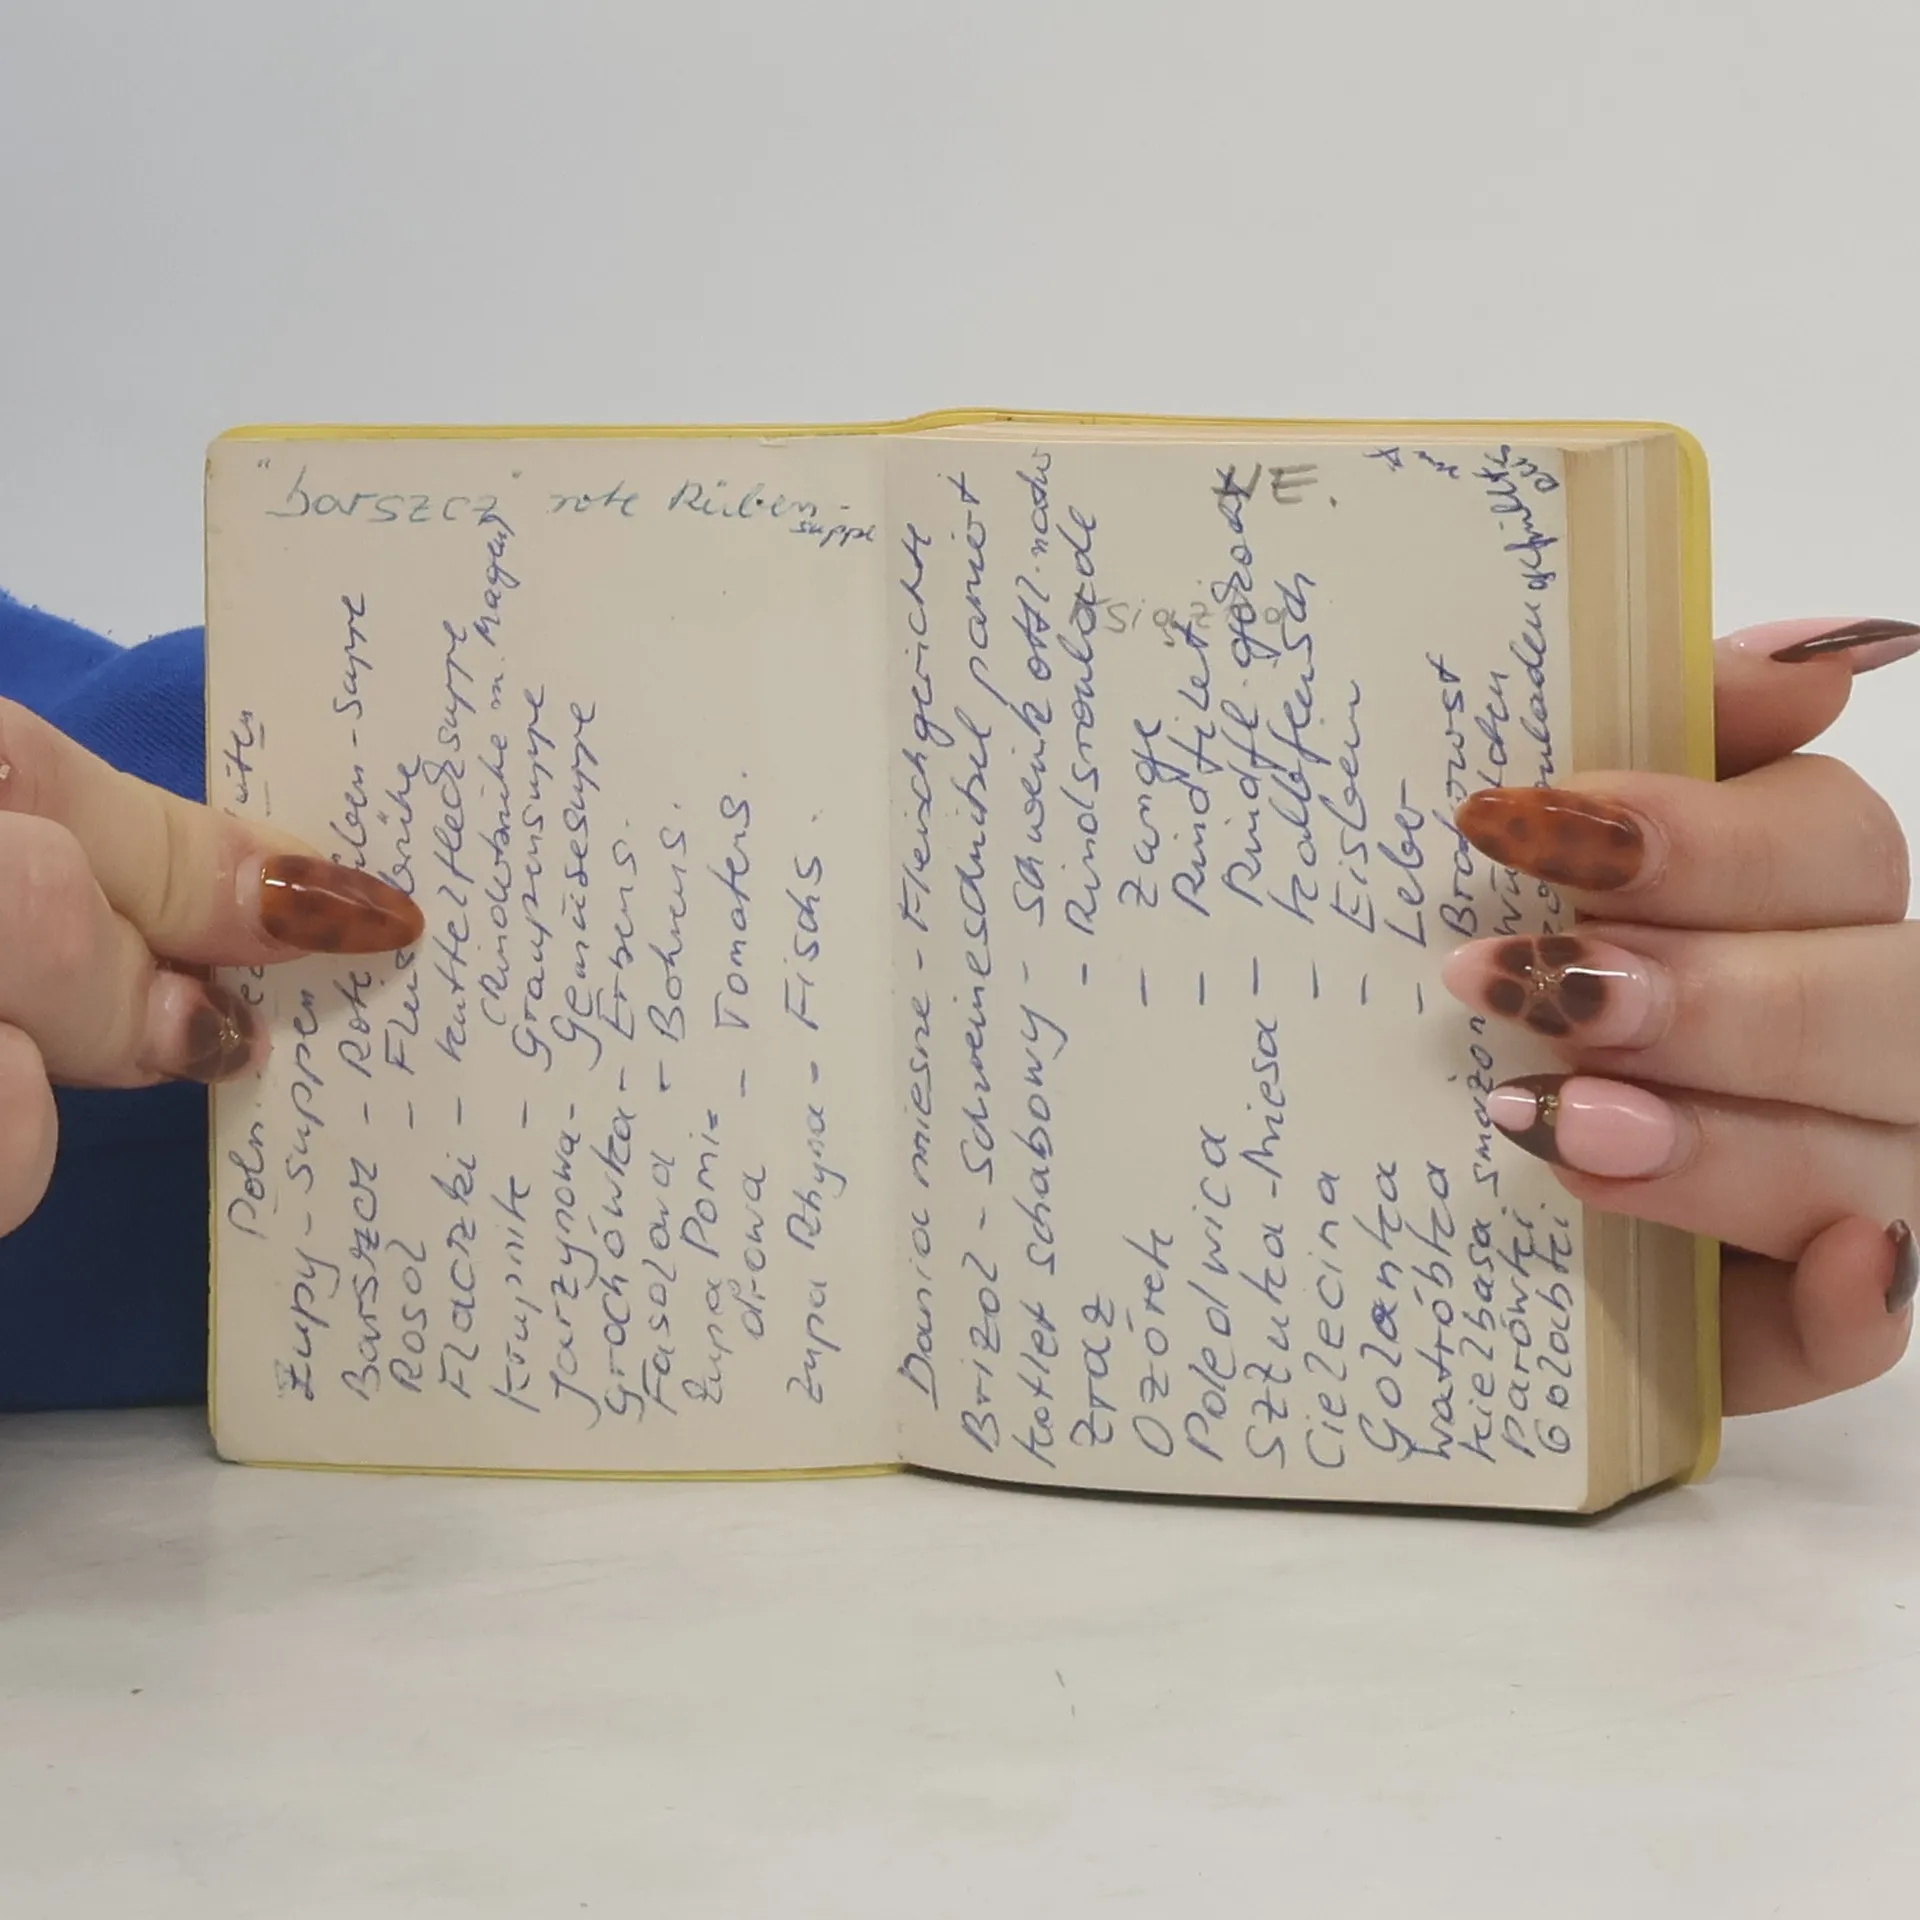 "barszcz" rote Rüben-
suppe
Poln.
Zupy - Suppen
Barszcz - Rote Rüben-Suppe
Rosol - Fleischbrühe
Flaczki - Kuttelflecksuppe
(Rindsbrühe m. Magen)
Krupnik - Graupensuppe
Jarzynowa - Gemüsesuppe
Grochówka - Erbsens.
Fasolowa - Bohnens.
Zupa Pomi=
dorowa - Tomatens.
Zupa Rhyna - Fischs.
Dania miesne - Fleischgerichte
Brizol - Schweineschnitzel paniert
Kotlet schabowy - Schweinkottl. natur
Zraz - Rindsroulade
Ozórek - Zunge
Poledwica - Rindfilet
Szzuka-Miesa - Rindfl. gekocht
Cielecina - Kalbfleisch
Golonka - Eisbein
Watróbka - Leber
Kielbasa smazon Bratwurst
Parówki
Golabki gefüllt